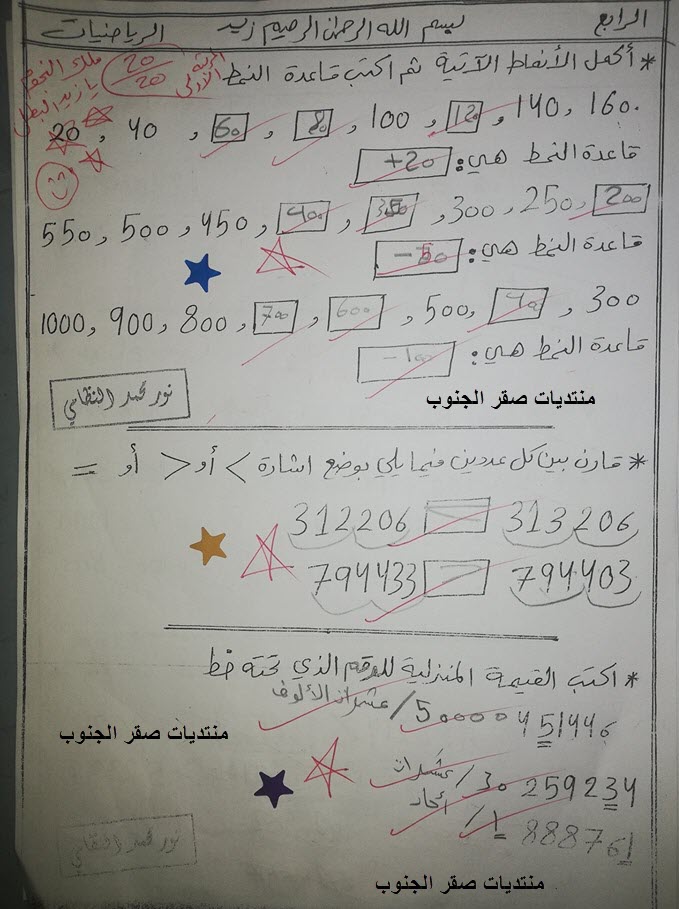 الرابع بسم الله الرحمن الرحيم زيد الرياضيات
* أكمل الأنماط الآتية ثم اكتب قاعدة النمط
20/20
المرتبة الأولى
ملك النجوم
يا زيد البطل
20 , 40 , 60 , 80 , 100 , 120 , 140 , 160
قاعدة النمط هي: +20
550 , 500 , 450 , 400 , 350 , 300 , 250 , 200
قاعدة النمط هي: -50
1000 , 900 , 800 , 700 , 600 , 500 , 400 , 300
قاعدة النمط هي: -100
نور محمد النظامي
منتديات صقر الجنوب
* قارن بين كل عددين فيما يلي بوضع اشارة < أو > أو =
312206 313206
794433 794403
* اكتب القيمة المنزلية للرقم الذي تحته خط
451446 50000 / عشرات الألوف
منتديات صقر الجنوب
259234 30 / عشرات
888761 1 / آحاد
نور محمد النظامي
منتديات صقر الجنوب